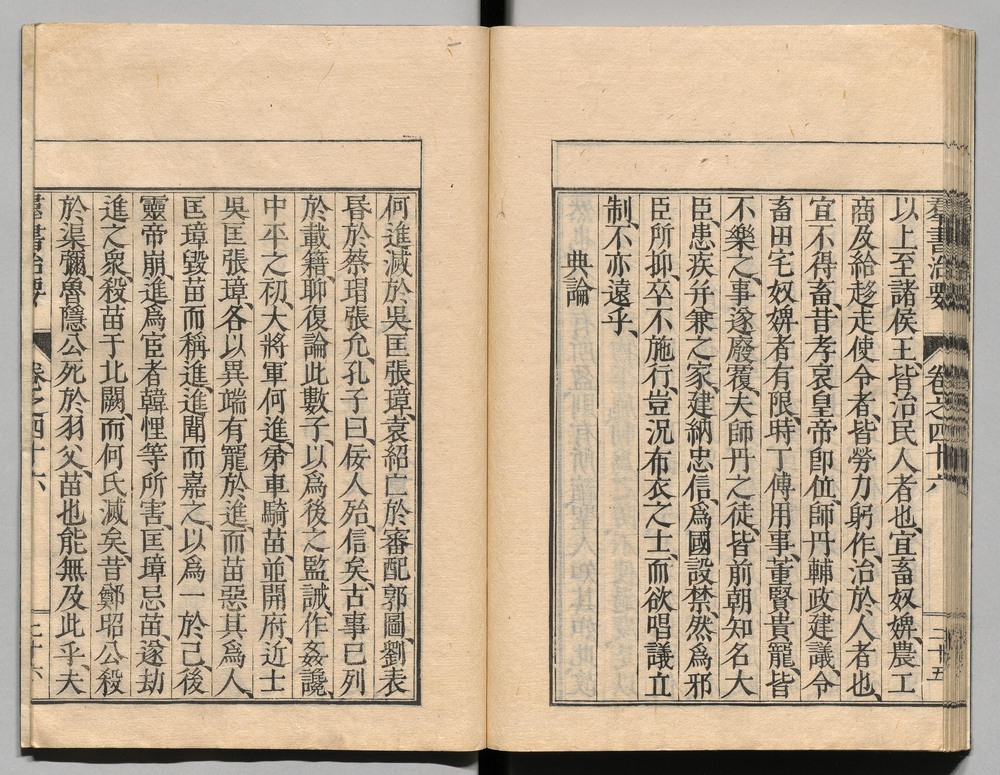 羣書治要 卷之四十六 二十五
以上至諸侯王、皆治民人者也、宜畜奴婢、農工
商及給趍走使令者、皆勞力躬作、治於人者也、
宜不得畜、昔孝哀皇帝卽位、師丹輔政建議、令
畜田宅奴婢者有限、時丁傅用事、董賢貴寵、皆
不樂之、事遂廢覆、夫師丹之徒、皆前朝知名大
臣、患疾幷兼之家、建納忠信、爲國設禁、然爲邪
臣所抑、卒不施行、豈況布衣之士、而欲唱議立
制、不亦遠乎、
典論
何進滅於吳匡張璋、袁紹亡於審配郭圖、劉表
昬於蔡瑁張允、孔子曰、佞人殆、信矣、古事已列
於載籍、聊復論此數子、以爲後之監誡、作姦讒、
中平之初、大將軍何進、弟車騎苗、並開府、近士
吳匡張璋、各以異端有寵於進、而苗惡其爲人、
匡璋毀苗而稱進、進聞而嘉之、以爲一於己、後
靈帝崩、進爲宦者韓悝等所害、匡璋忌苗、遂劫
進之衆、殺苗于北闕、而何氏滅矣、昔鄭昭公殺
於渠彌、魯隱公死於羽父、苗也能無及此乎、夫
羣書治要 卷之四十六 二十六